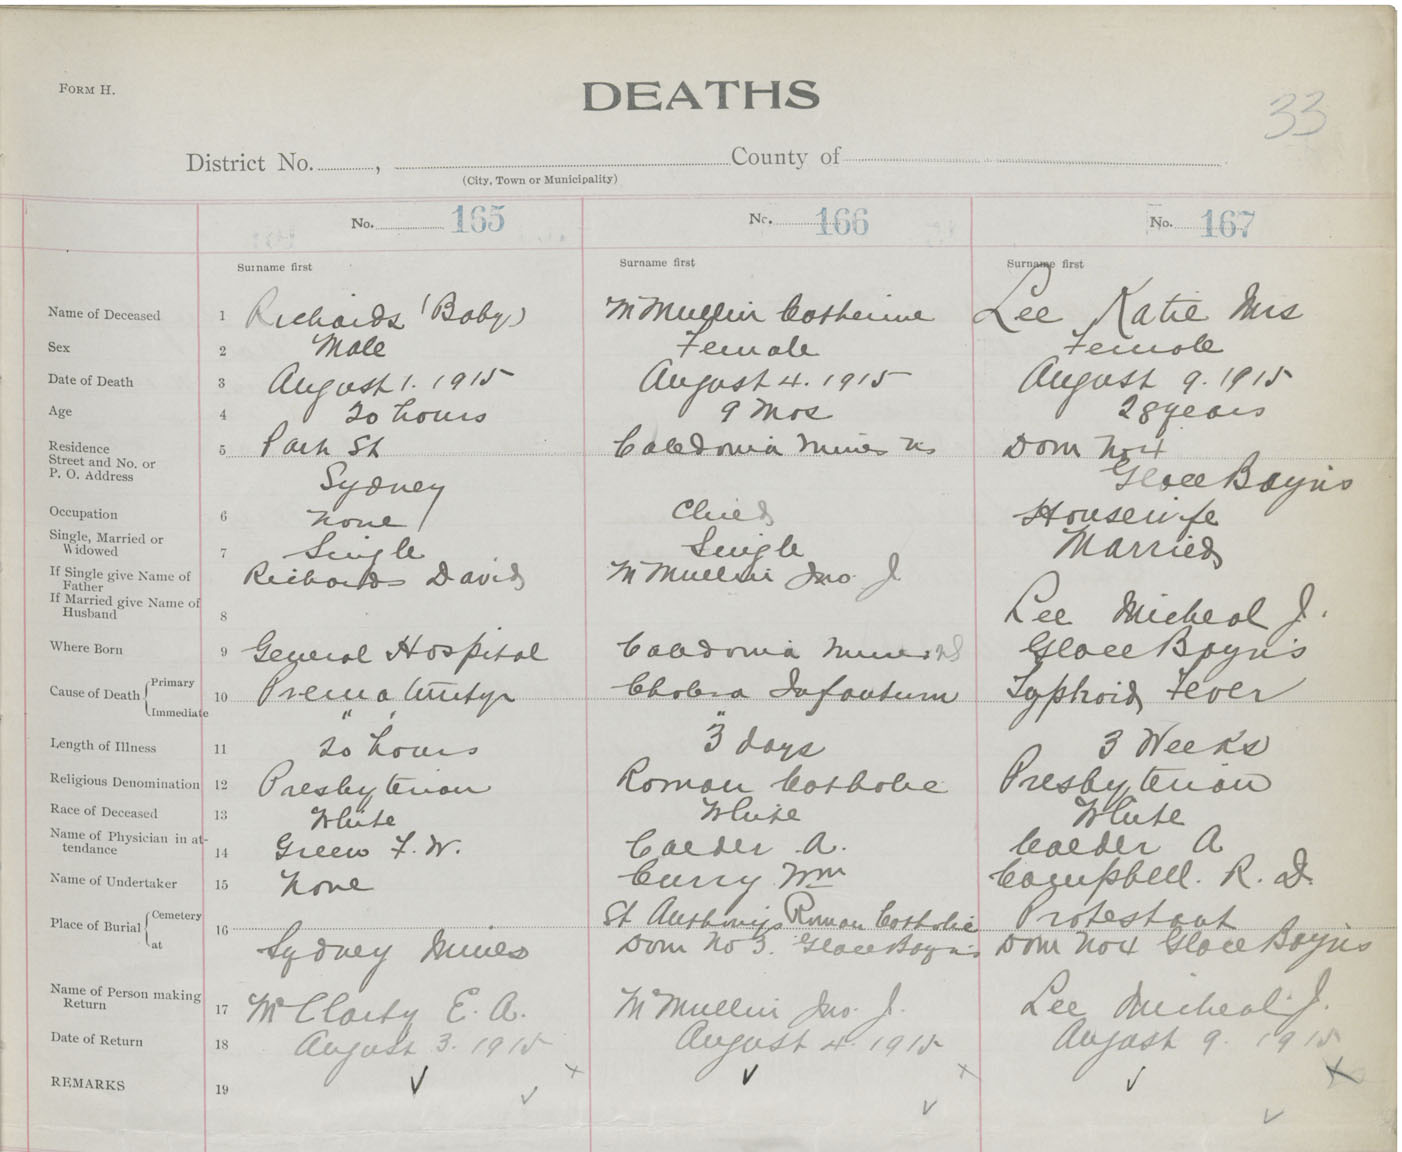 FORM H.
DEATHS
33
District No. , County of
(City, Town or Municipality)
No. 165 No. 166 No. 167
Surname first Surname first Surname first
Name of Deceased 1 Richards (Baby) McMullin Catherine Lee Katie Mrs
Sex 2 Male Female Female
Date of Death 3 August 1. 1915 August 4. 1915 August 9. 1915
Age 4 20 hours 9 Mos 28 years
Residence
Street and No. or
P. O. Address 5 Park St Caledonia Mines NS Dom No 4
Sydney Glace Bay NS
Occupation 6 None Child Housewife
Single, Married or
Widowed 7 Single Single Married
If Single give Name of
Father Richards David McMullin Jno. J
If Married give Name of
Husband 8 Lee Micheal J.
Where Born 9 General Hospital Caledonia Mines NS Glace Bay NS
Cause of Death Primary 10 Prematurity Cholera Infantum Typhoid Fever
Immediate " " "
Length of Illness 11 20 hours 3 days 3 Weeks
Religious Denomination 12 Presbyterian Roman Catholic Presbyterian
Race of Deceased 13 White White White
Name of Physician in at-
tendance 14 Green F. W. Calder A. Calder A
Name of Undertaker 15 None Curry Wm Campbell. R. D.
Place of Burial Cemetery 16 St Anthonys Roman Catholic Protestant
at Sydney Mines Dom No 3. Glace Bay NS Dom No 4 Glace Bay NS
Name of Person making
Return 17 McClarty E. A. McMullin Jno. J. Lee Micheal J.
Date of Return 18 August 3. 1915 August 4. 1915 August 9. 1915
REMARKS 19